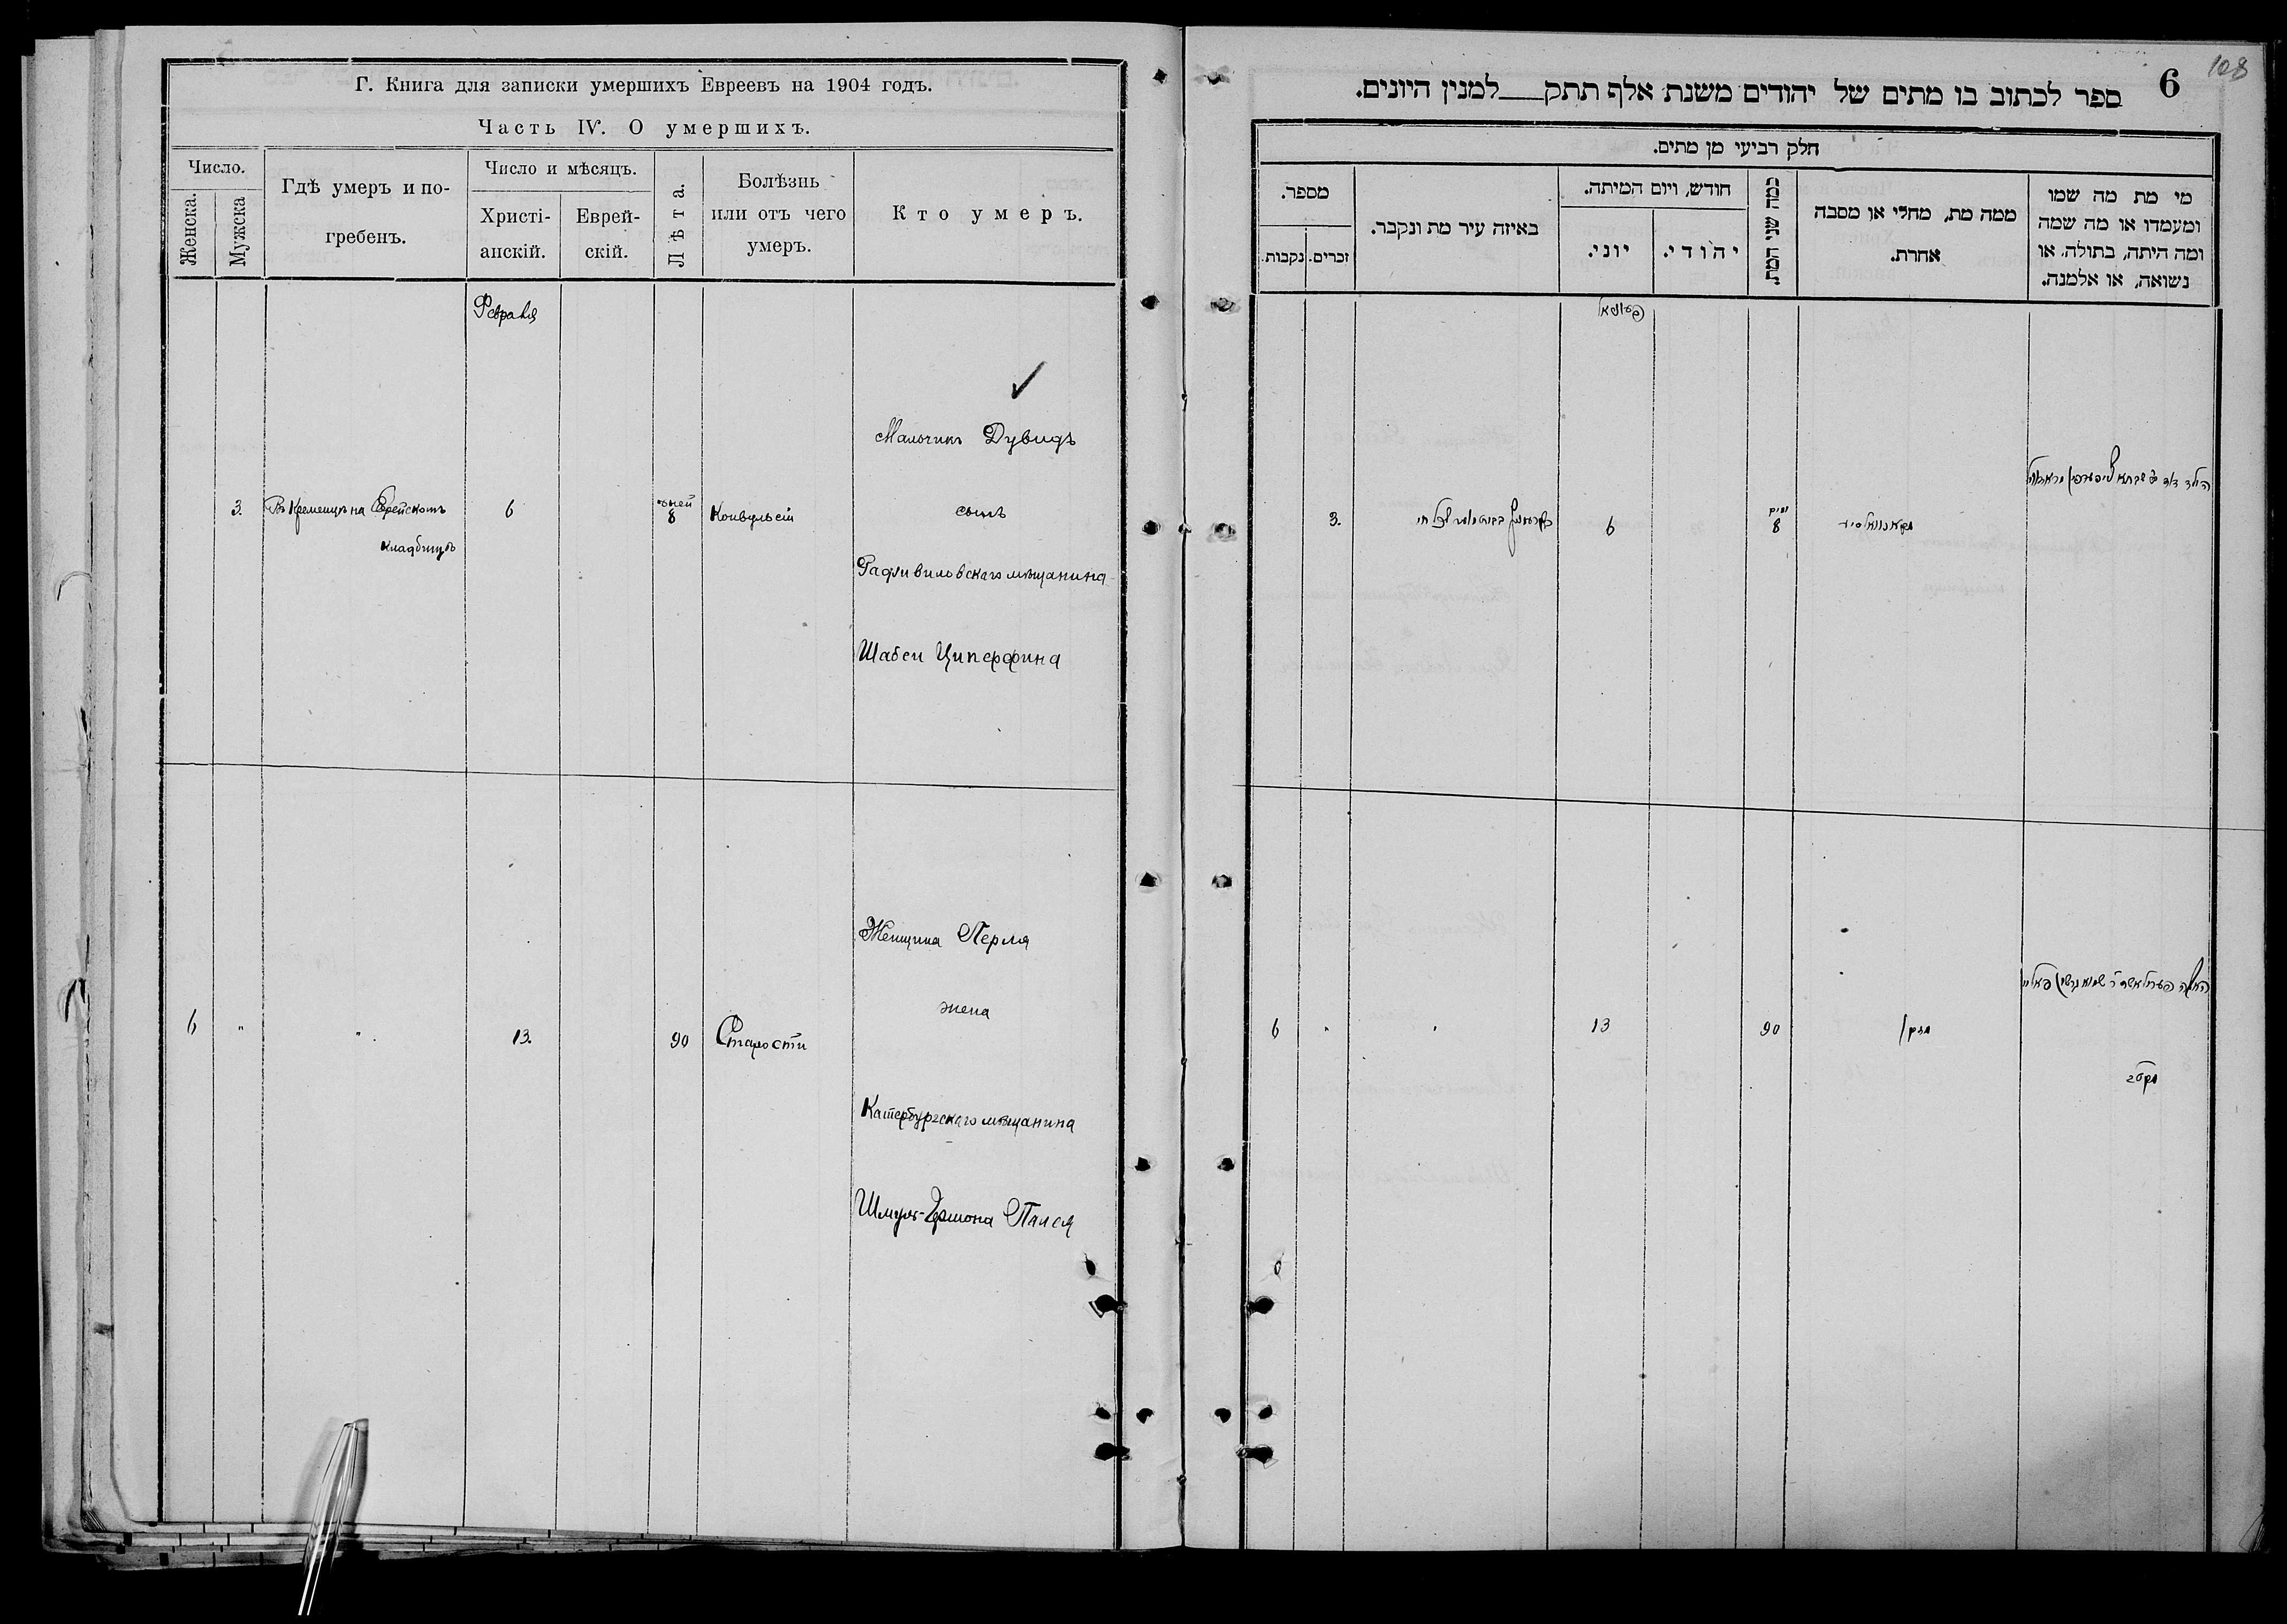 Г. Книга для записки умершихъ Евреевъ на 1904 годъ.
Часть IV. О умершихъ.
Число.
Женска.
Мужска
Гдѣ умеръ и по-
гребенъ.
Число и мѣсяцъ.
Христі-
анскій.
Еврей-
скій.
Лѣта.
Болѣзнь
или отъ чего
умеръ.
Кто умеръ.
Февраля
Мальчикъ Дувидъ
3. Въ Кременцѣ на Еврейскомъ
кладбищѣ
6
дней
8
Конвульсіи
сынъ
Радзивиловскаго мѣщанина
Шабси Циперфина
Женщина Перля
6 " " 13. 90 Старости
жена
Катербургскаго мѣщанина
Шмуля-Гершона
108
6
ספר לכתוב בו מתים של יהודים משנת אלף תתק__למנין היונים.
חלק רביעי מן מתים.
מספר.
נקבות.
זכרים.
באיזה עיר מת ונקבר.
חודש, ויום המיתה.
יוני.
יהודי.
כמה שני המת.
ממה מת, מחלי או מסבה
אחרת.
מי מת מה שמו
ומעמדו או מה שמה
ומה היתה, בתולה, או
נשואה, או אלמנה.
הילד דוד
3.
6
ימים
8
6 " " 13 90 מזקן